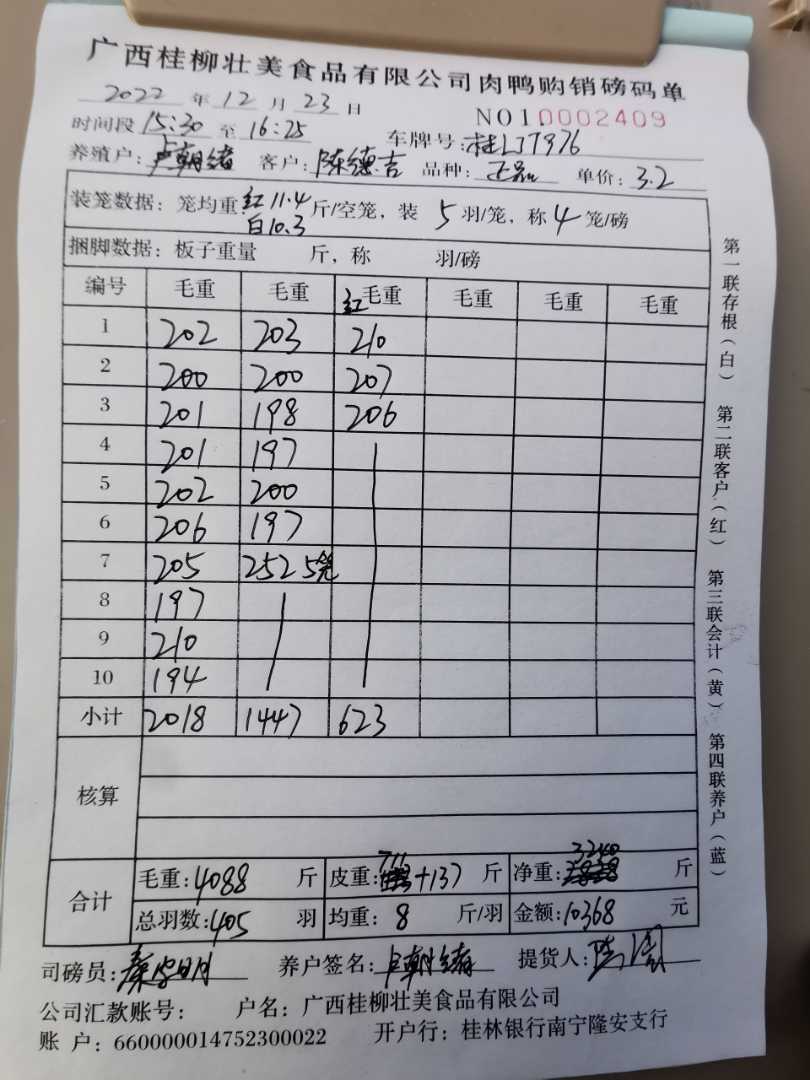 广西桂柳壮美食品有限公司肉鸭购销磅码单
2022 年 12 月 23 日 NO10002409
时间段 15:30 至 16:25 车牌号: 桂LJT976
养殖户: 卢朝绪 客户: 陈德吉 品种: 正品 单价: 3.2
装笼数据: 笼均重 红11.4 斤/空笼, 装 5 羽/笼, 称 4 笼/磅
白10.3
捆脚数据: 板子重量 斤, 称 羽/磅
编号 毛重 毛重 红毛重 毛重 毛重 毛重
1 202 203 210
2 200 200 207
3 201 198 206
4 201 197
5 202 200
6 206 197
7 205 252 5笼
8 197
9 210
10 194
小计 2018 1447 623
核算
合计
毛重: 4088 斤 皮重: 711+137 斤 净重: 3240 斤
总羽数: 405 羽 均重: 8 斤/羽 金额: 10368 元
司磅员: 养户签名: 卢朝绪 提货人:
公司汇款账号: 户名: 广西桂柳壮美食品有限公司
账 户: 660000014752300022 开户行: 桂林银行南宁隆安支行
第一联存根(白) 第二联客户(红) 第三联会计(黄) 第四联养户(蓝)